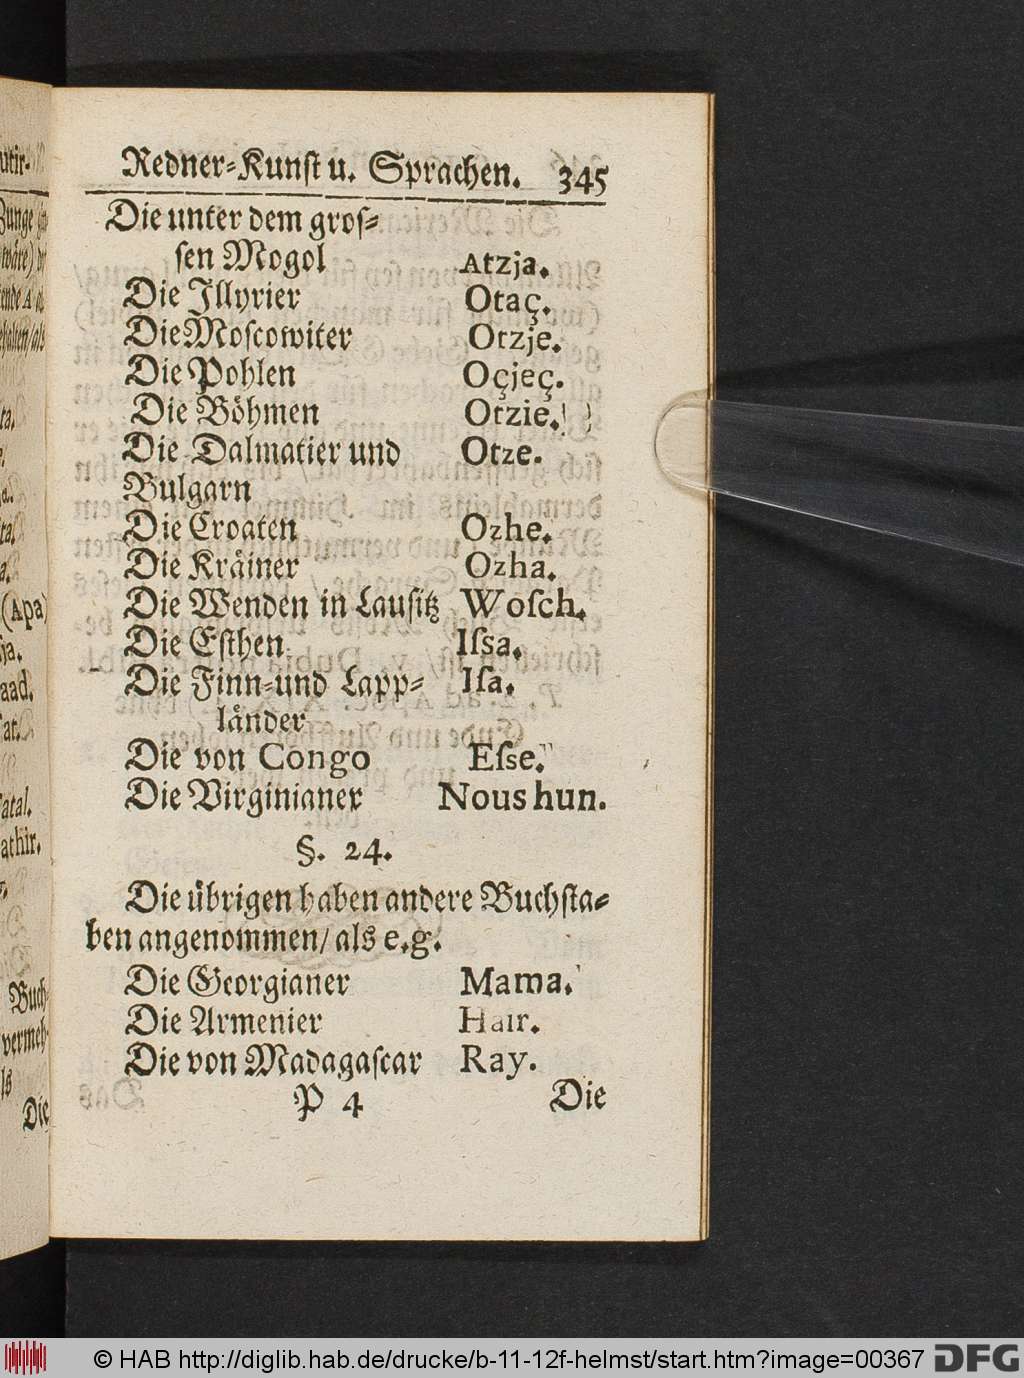 Redner-Kunst u. Sprachen. 345
Die unter dem gros-
sen Mogol Atzja.
Die Illyrier Otaç.
Die Moscowiter Otzje.
Die Pohlen Oçjeç.
Die Böhmen Otzie.
Die Dalmatier und Otze.
Bulgarn
Die Croaten Ozhe.
Die Kräiner Ozha.
Die Wenden in Lausitz Woſch.
Die Esthen Iſsa.
Die Finn-und Lapp- Iſa.
länder
Die von Congo Eſse.
Die Virginianer Nous hun.
§. 24.
Die übrigen haben andere Buchsta-
ben angenommen/ als e.g.
Die Georgianer Mama.
Die Armenier Hair.
Die von Madagascar Ray.
P 4 Die
(Apa)
aad.
Buch-
Die
© HAB http://diglib.hab.de/drucke/b-11-12f-helmst/start.htm?image=00367 DFG